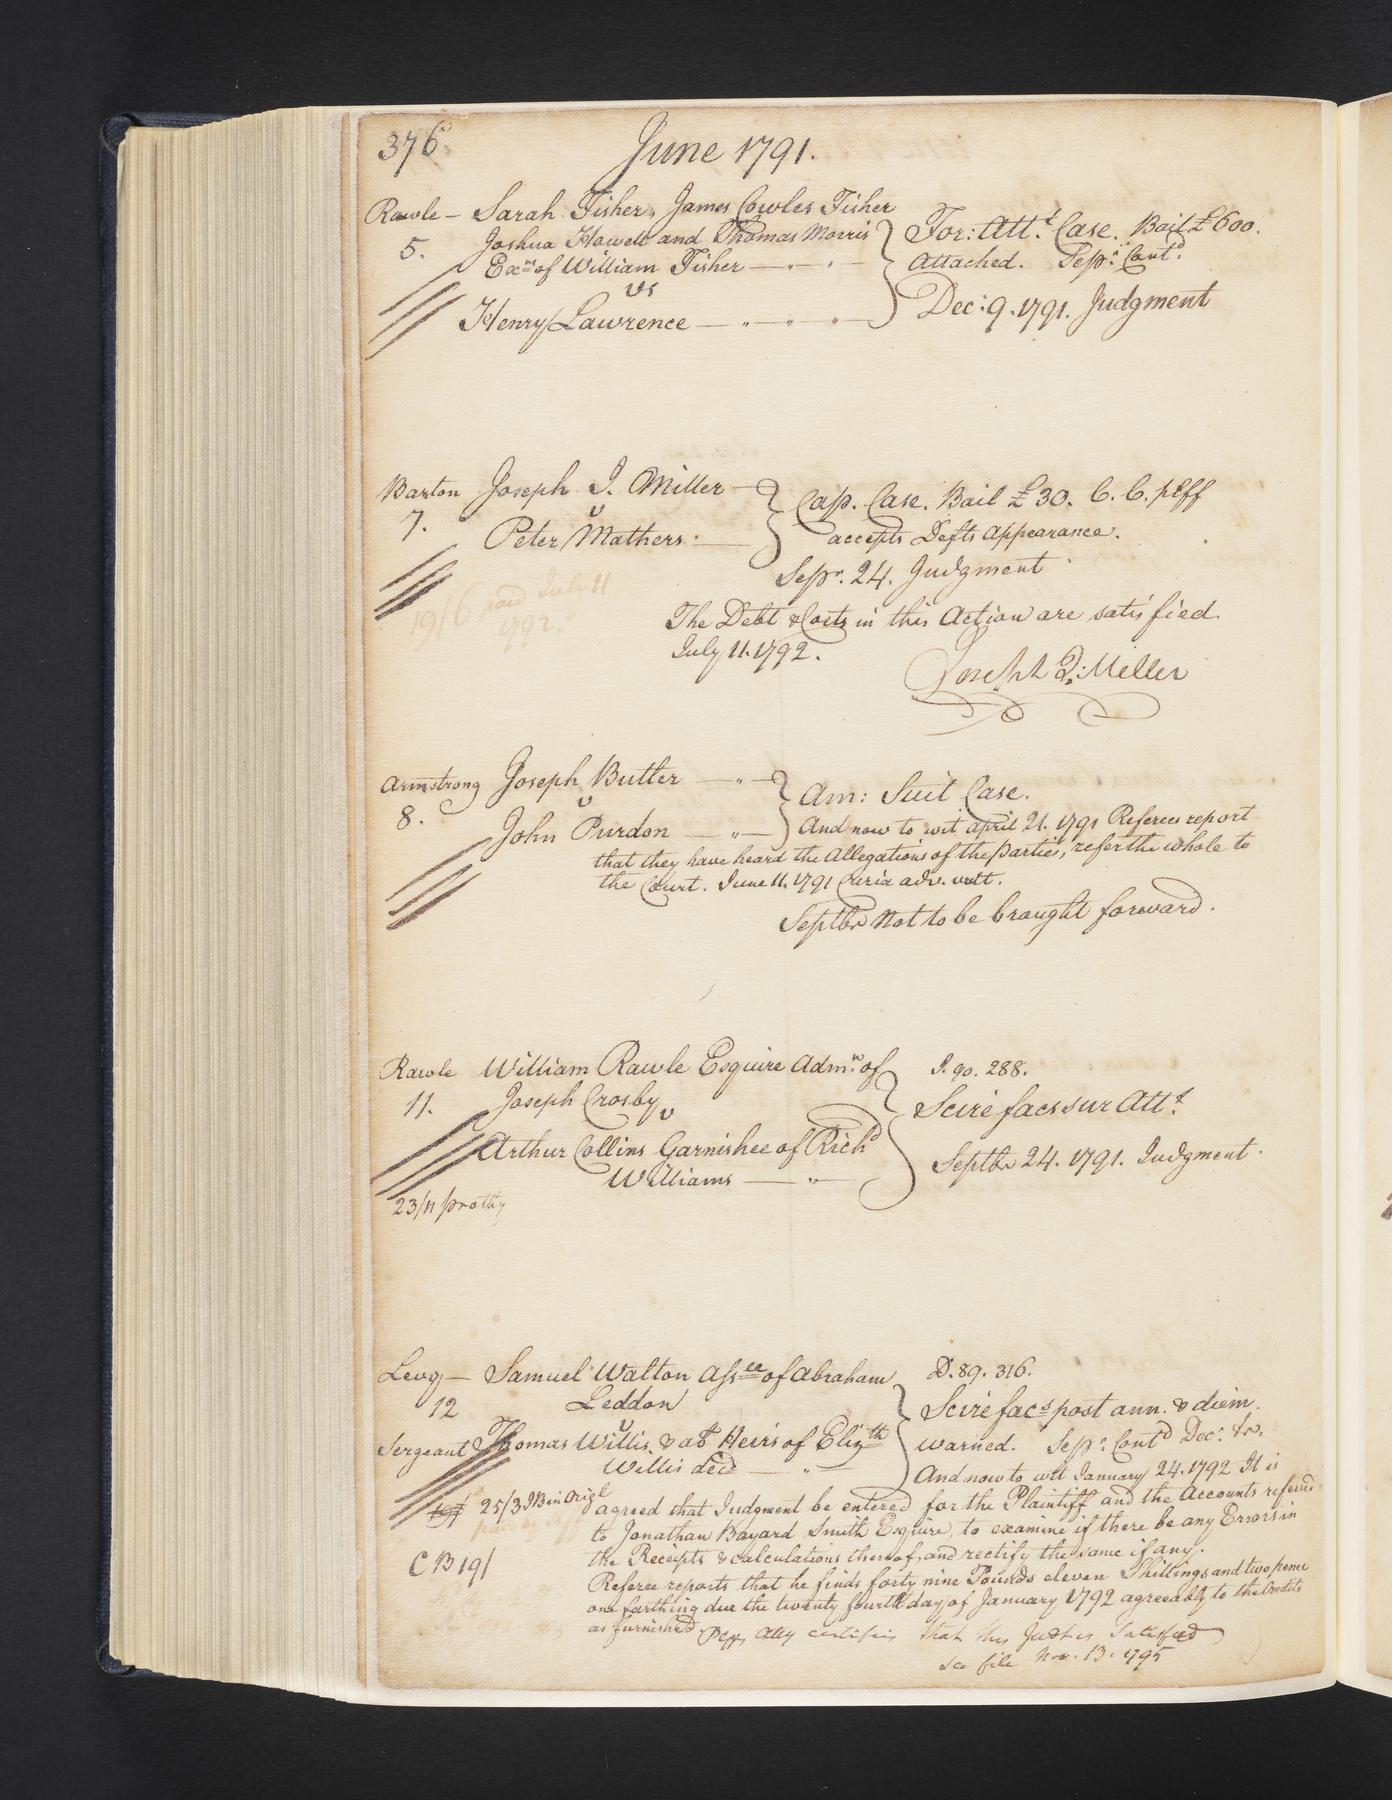 376
June 1791.
Rawle — Sarah Fisher, James Cowles Fisher
5. Joshua Howell and Thomas Morris
Exrs of William Fisher
vs
Henry Lawrence
For: Attt Case. Bail £600.
Attached. Sepr: Contd
Dec: 9. 1791. Judgment
Barton Joseph I. Miller
7. v
Peter Mathers
Cap. Case. Bail £30. C. C. plff
accepts Defts appearance.
Sepr. 24. Judgment
19/6 paid July 11
1792.
The Debt & Costs in this Action are satisfied.
July 11. 1792.
Joseph I: Miller
Armstrong Joseph Butler
8. v
John Purdon
Am: Suit Case.
And now to wit April 21. 1791 Referees report
that they have heard the Allegations of the parties, refer the whole to
the Court. June 11. 1791 Curia adv. vult.
Septbr Not to be brought forward.
Rawle William Rawle Esquire Admr. of
11. Joseph Crosby
v
Arthur Collins Garnishee of Richd
Williams
23/11 prothy
J. 90. 288.
Scire facs sur Attt
Septbr 24. 1791. Judgment.
Levy — Samuel Walton Assee of Abraham
12 Leddon
v
Sergeant Thomas Willis & als Heirs of Elizth
Willis decd
D. 89. 316.
Scire facs post ann. & diem.
warned. Sepr: Contd Decr: &c.
And now to wit January 24. 1792 It is
25/3 JB in Origl
agreed that Judgment be entered for the Plaintiff and the Accounts referred
to Jonathan Bayard Smith Esquire, to examine if there be any Errors in
CB 19/
the Receipts & calculations thereof, and rectify the same if any.
Referee reports that he finds forty nine Pounds eleven Shillings and two pence
one farthing due the twenty fourth day of January 1792 agreeably to the Credits
as furnished
Plffs Atty certifies that this Judt is Satisfied
see file Nov. 13. 1795